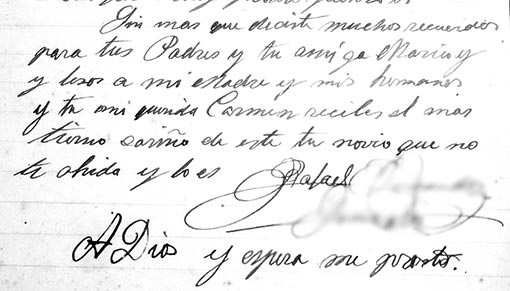 Sin mas que decirte muchos recuerdos
para tus Padres y tu amiga Maria y
y besos a mi Madre y mis hermanos
y tu mi querida Carmen recibes el mas
tierno cariño de este tu novio que no
te olvida y lo es Rafael
A Dios y espera me pronto.